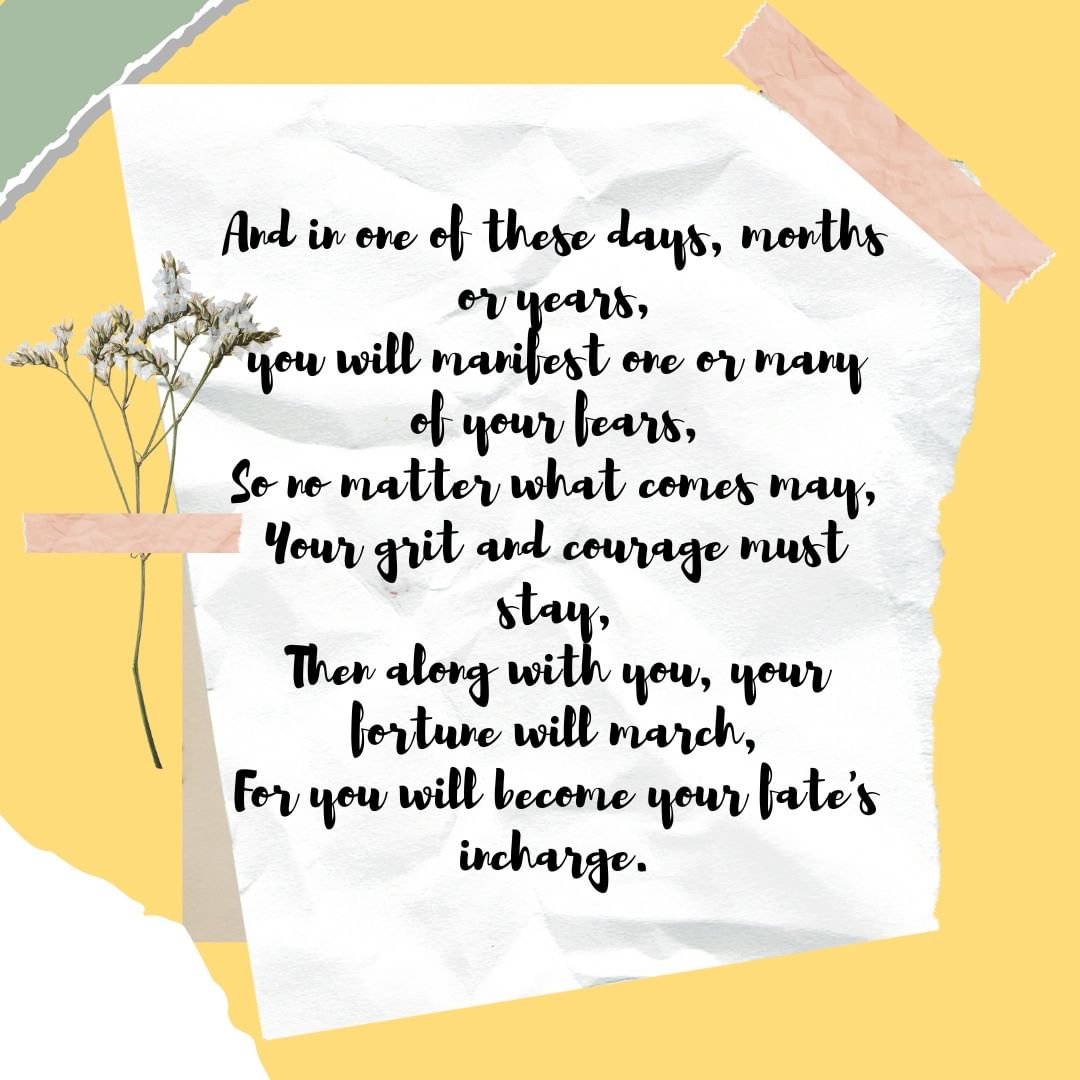 And in one of these days, months
or years,
you will manifest one or many
of your fears,
So no matter what comes may,
Your grit and courage must
stay,
Then along with you, your
fortune will march,
For you will become your fate's
incharge.